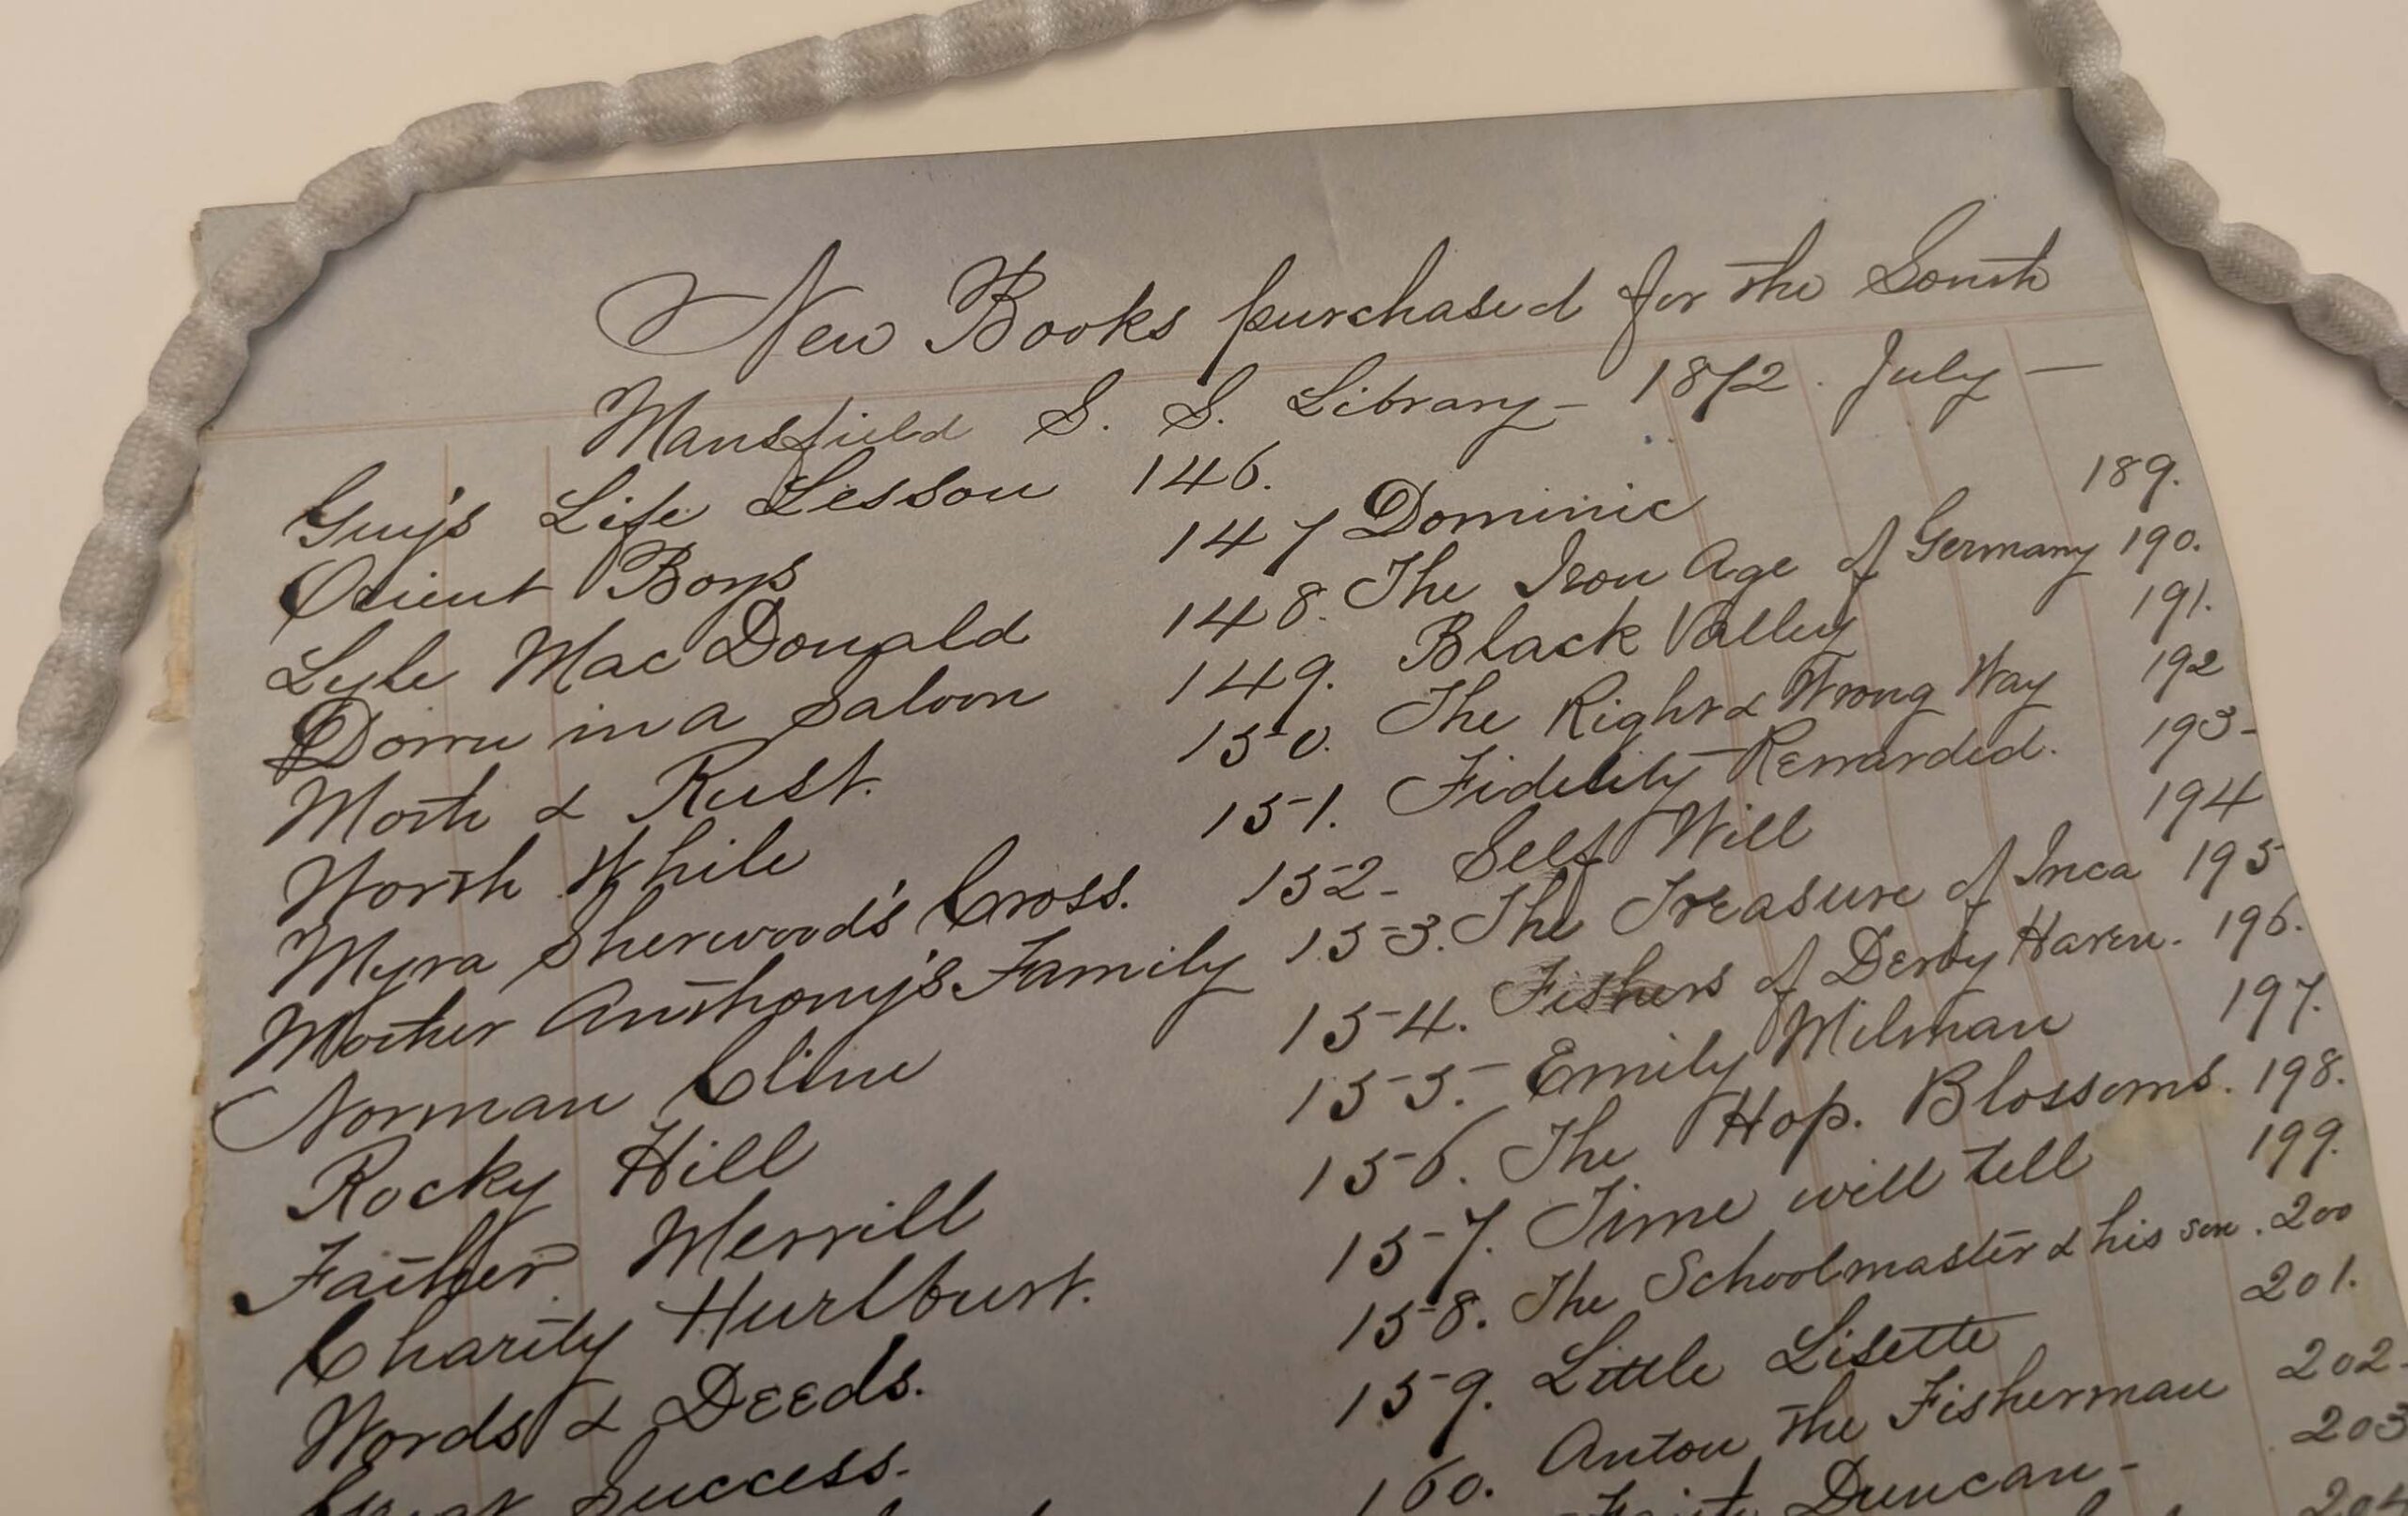 New Books purchased for the South
Mansfield S. S. Library - 1872. July -
Guy's Life Lesson 146.
Orient Boys 147 Dominic 189.
Lyle MacDonald 148. The Iron Age of Germany 190.
Down in a Saloon 149. Black Valley 191.
Moth & Rust. 150. The Right & Wrong Way 192
Worth While 151. Fidelity Rewarded. 193-
Myra Sherwood's Cross. 152- Self Will 194
Mother Anthony's Family 153. The Treasure of Inca 195
Norman Cline 154. Fishers of Derby Haven. 196.
Rocky Hill 155. Emily Milman 197.
Father Merrill 156. The Hop. Blossoms. 198.
Charity Hurlburt. 157. Time will tell 199.
Words & Deeds. 158. The Schoolmaster & his son. 200
Great Success. 159. Little Lisette 201.
160. Anton the Fisherman 202-
Duncan- 203
204